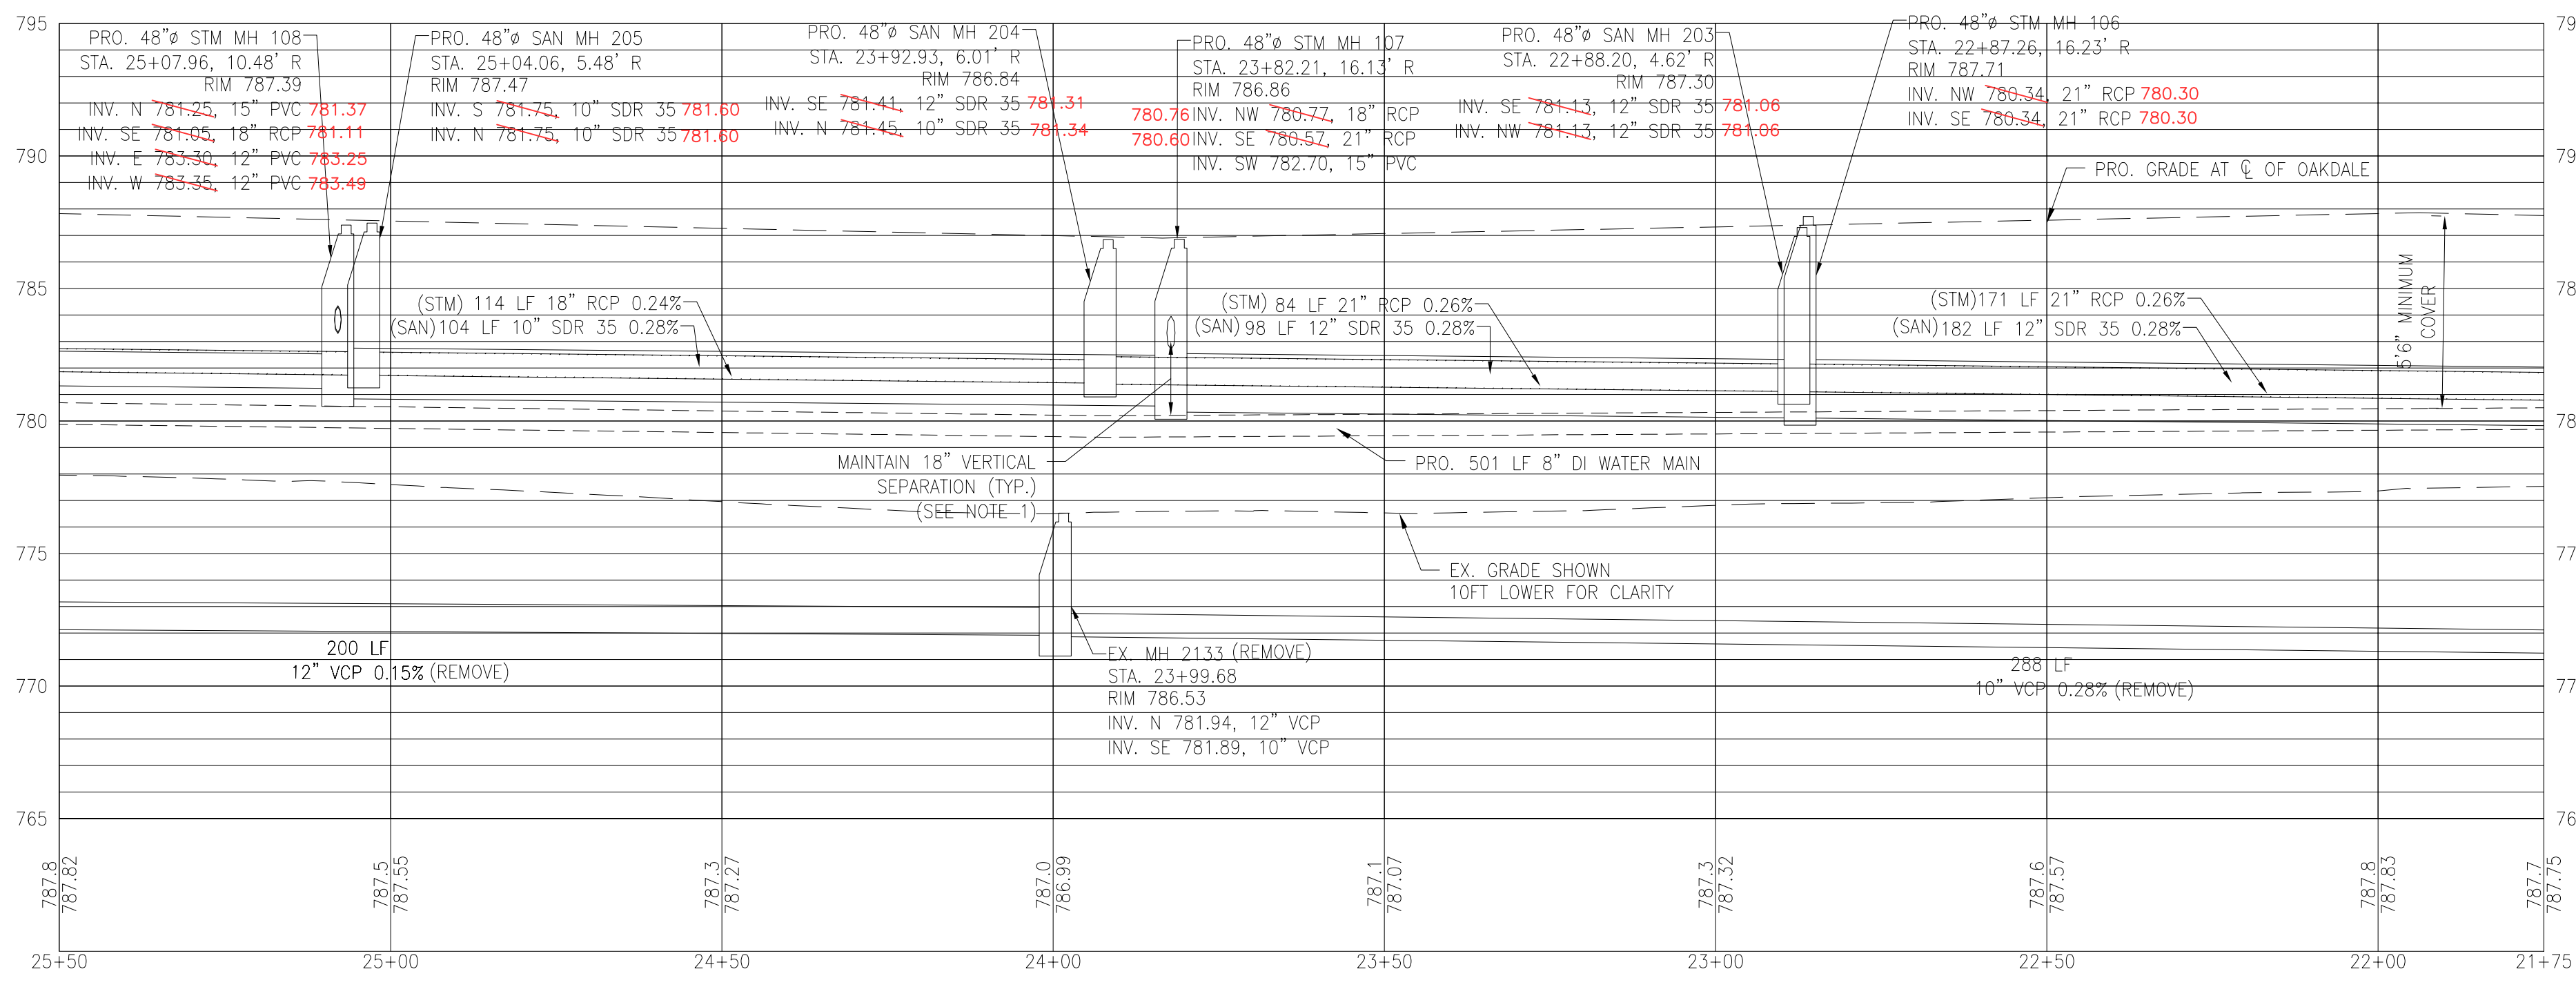 795
790
785
780
775
770
765
PRO. 48"ø STM MH 108
STA. 25+07.96, 10.48' R
RIM 787.39
INV. N 781.25, 15" PVC 781.37
INV. SE 781.05, 18" RCP 781.11
INV. E 783.30, 12" PVC 783.25
INV. W 783.35, 12" PVC 783.49
PRO. 48"ø SAN MH 205
STA. 25+04.06, 5.48' R
RIM 787.47
INV. S 781.75, 10" SDR 35 781.60
INV. N 781.75, 10" SDR 35 781.60
PRO. 48"ø SAN MH 204
STA. 23+92.93, 6.01' R
RIM 786.84
INV. SE 781.41, 12" SDR 35 781.31
INV. N 781.45, 10" SDR 35 781.34
PRO. 48"ø STM MH 107
STA. 23+82.21, 16.13' R
RIM 786.86
780.76 INV. NW 780.77, 18" RCP
780.60 INV. SE 780.57, 21" RCP
INV. SW 782.70, 15" PVC
PRO. 48"ø SAN MH 203
STA. 22+88.20, 4.62' R
RIM 787.30
INV. SE 781.13, 12" SDR 35 781.06
INV. NW 781.13, 12" SDR 35 781.06
PRO. 48"ø STM MH 106
STA. 22+87.26, 16.23' R
RIM 787.71
INV. NW 780.34, 21" RCP 780.30
INV. SE 780.34, 21" RCP 780.30
PRO. GRADE AT ℄ OF OAKDALE
(STM) 114 LF 18" RCP 0.24%
(SAN) 104 LF 10" SDR 35 0.28%
(STM) 84 LF 21" RCP 0.26%
(SAN) 98 LF 12" SDR 35 0.28%
(STM) 171 LF 21" RCP 0.26%
(SAN) 182 LF 12" SDR 35 0.28%
5'6" MINIMUM
COVER
MAINTAIN 18" VERTICAL
SEPARATION (TYP.)
(SEE NOTE 1)
PRO. 501 LF 8" DI WATER MAIN
EX. GRADE SHOWN
10FT LOWER FOR CLARITY
200 LF
12" VCP 0.15% (REMOVE)
EX. MH 2133 (REMOVE)
STA. 23+99.68
RIM 786.53
INV. N 781.94, 12" VCP
INV. SE 781.89, 10" VCP
288 LF
10" VCP 0.28% (REMOVE)
79
79
78
78
77
77
76
787.8
787.82
787.5
787.55
787.3
787.27
787.0
786.99
787.1
787.07
787.3
787.32
787.6
787.57
787.8
787.83
787.7
787.75
25+50
25+00
24+50
24+00
23+50
23+00
22+50
22+00
21+75